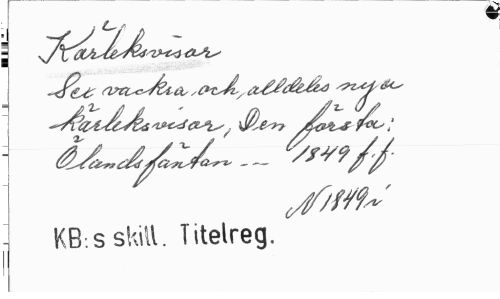 Kärleksvisor
Sex vackra och alldeles nya
kärleksvisor, Den första:
Ölandsfäntan --- 1849 f.f.
N 1849 i
KB:s skill. Titelreg.